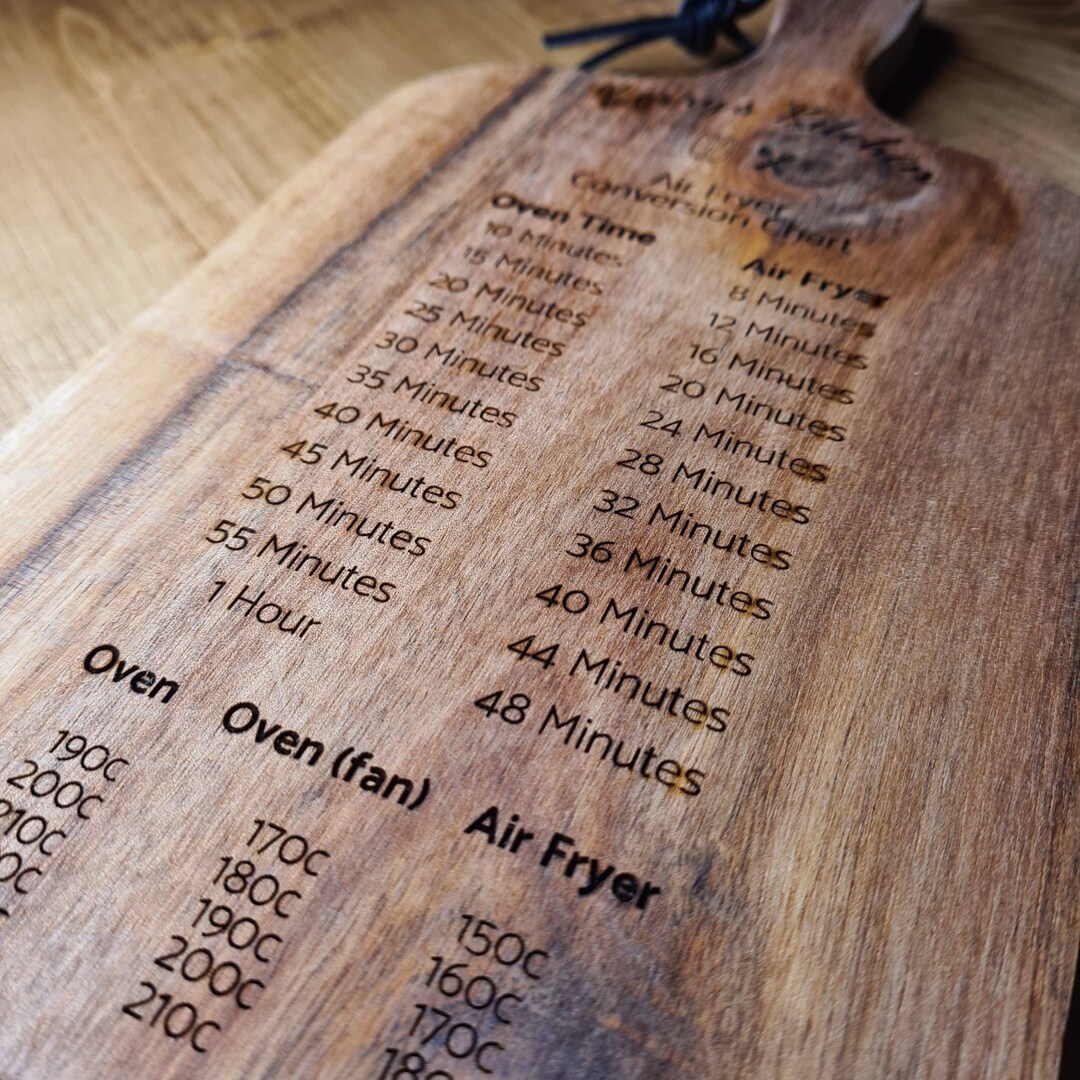 Kitchen
Air Fryer
Conversion Chart
Oven Time Air Fryer
10 Minutes 8 Minutes
15 Minutes 12 Minutes
20 Minutes 16 Minutes
25 Minutes 20 Minutes
30 Minutes 24 Minutes
35 Minutes 28 Minutes
40 Minutes 32 Minutes
45 Minutes 36 Minutes
50 Minutes 40 Minutes
55 Minutes 44 Minutes
1 Hour 48 Minutes
Oven Oven (fan) Air Fryer
190C 170C 150C
200C 180C 160C
210C 190C 170C
200C
210C